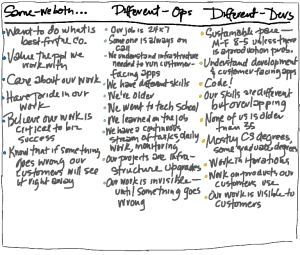 Same-веtoтн...
Want to do what is
best for the co.
Value the ppl we
work with
Care about our work
Have pride in our
work
Believe our work is
critical to biz
success
Know that if something
goes wrong our
customers will see
it right away
Different - Ops
Our job is 24x7
Someone is always on
call
We understand infrastructure
needed to run customer-
facing apps
We have different skills
We're older
We went to tech school
We learned on the job
We have a continuous
stream of tasks daily
work, monitoring
Our projects are infra-
structure upgrades
Our work is invisible —
until something goes
wrong
Different - Devs
Sustainable pace —
M-F 8-5 unless there
is a production prob.
Understand development
& customer facing apps
Code!
Our skills are different
but overlapping
None of us is older
than 35
Mostly CS degrees,
some graduate degrees
Work in iterations
Work on products our
customers use
Our work is visible to
customers